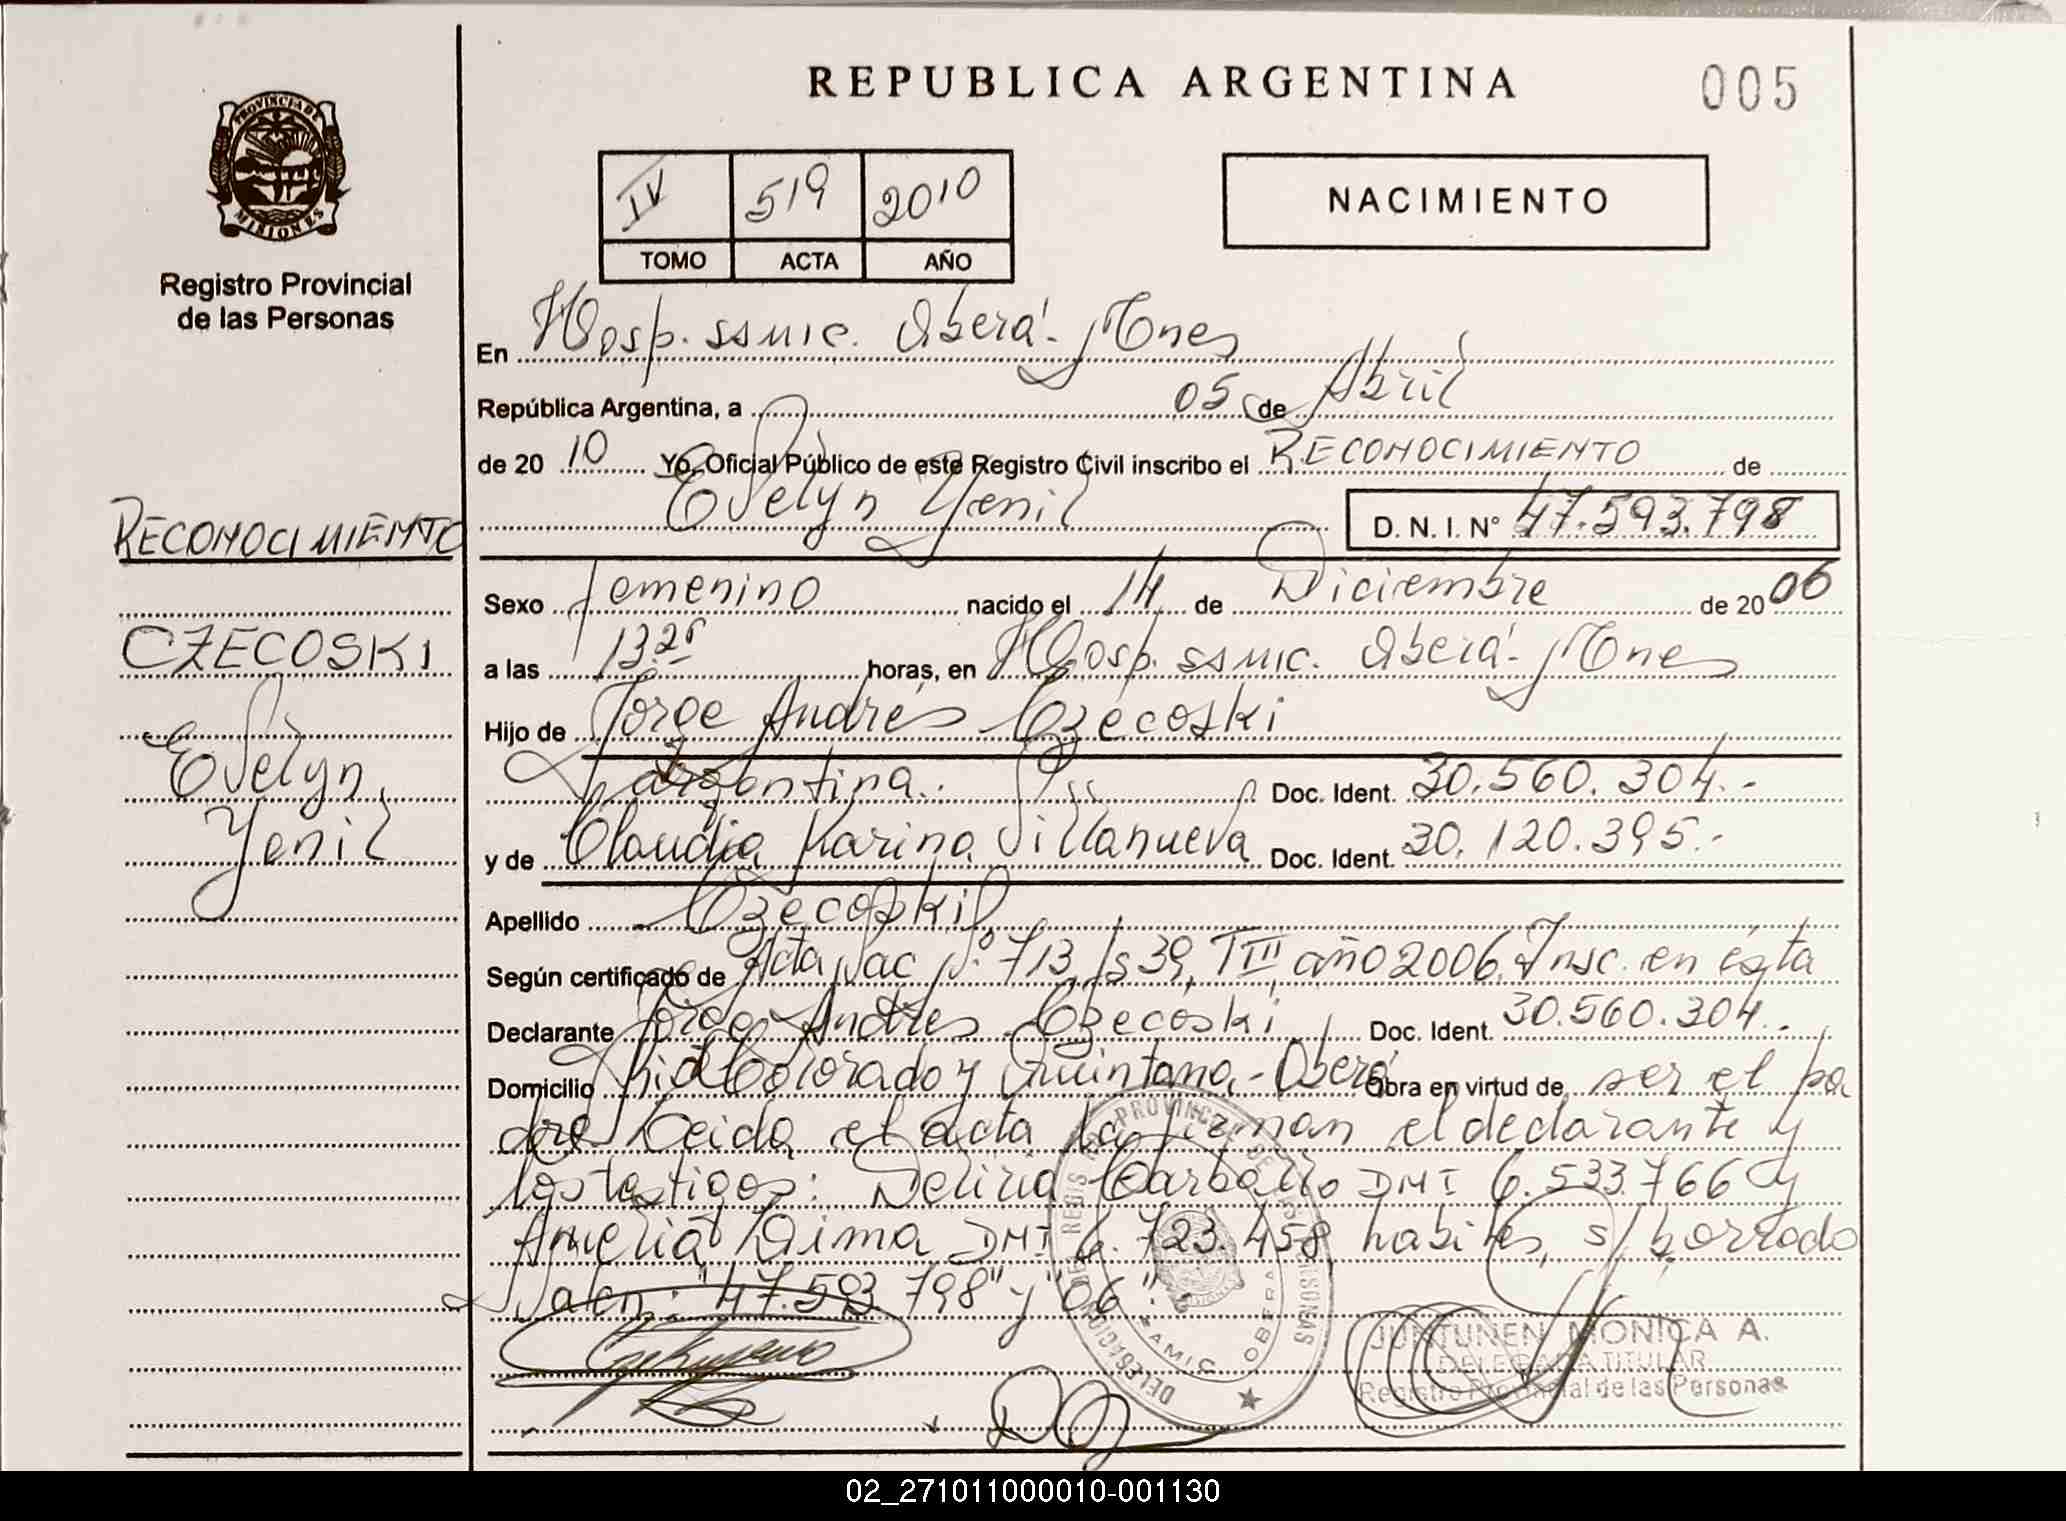 REPUBLICA ARGENTINA
005
PROVINCIA DE
MISIONES
Registro Provincial
de las Personas
IV 519 2010
TOMO ACTA AÑO
NACIMIENTO
En Hosp. SSMIC. Oberá - Mnes
República Argentina, a 05 de Abril
de 20 10 Yo, Oficial Público de este Registro Civil inscribo el RECONOCIMIENTO de
Evelyn Yenil
D. N. I. N° 47.593.798
RECONOCIMIENTO
CZECOSKI
Evelyn
Yenil
Sexo femenino nacido el 14 de Diciembre de 20 06
a las 13.25 horas, en Hosp. SSMIC. Oberá - Mnes
Hijo de Jorge Andrés Czecoski
argentina. Doc. Ident. 30.560.304.-
y de Claudia Karina Villanueva Doc. Ident. 30.120.395.-
Apellido Czecoski
Según certificado de Acta Nac N° 713, fs 39, T III año 2006. Insc. en ésta
Declarante Jorge Andrés Czecoski Doc. Ident. 30.560.304.-
Domicilio Colorado y Quintana - Oberá Obra en virtud de ser el pa
dre Leida el acta la firman el declarante y
los testigos: Deliria Carballo DNI 6.533.766 y
Amelia Dima DNI 6.723.458 habiles, s/borrado
Valen: "47.593.798" y "06".
DELEGACION DEL REGISTRO PROVINCIAL DE LAS PERSONAS
SAMIC OBERA
JUNTUNEN MONICA A.
DELEGADA TITULAR
Registro Provincial de las Personas
02_271011000010-001130